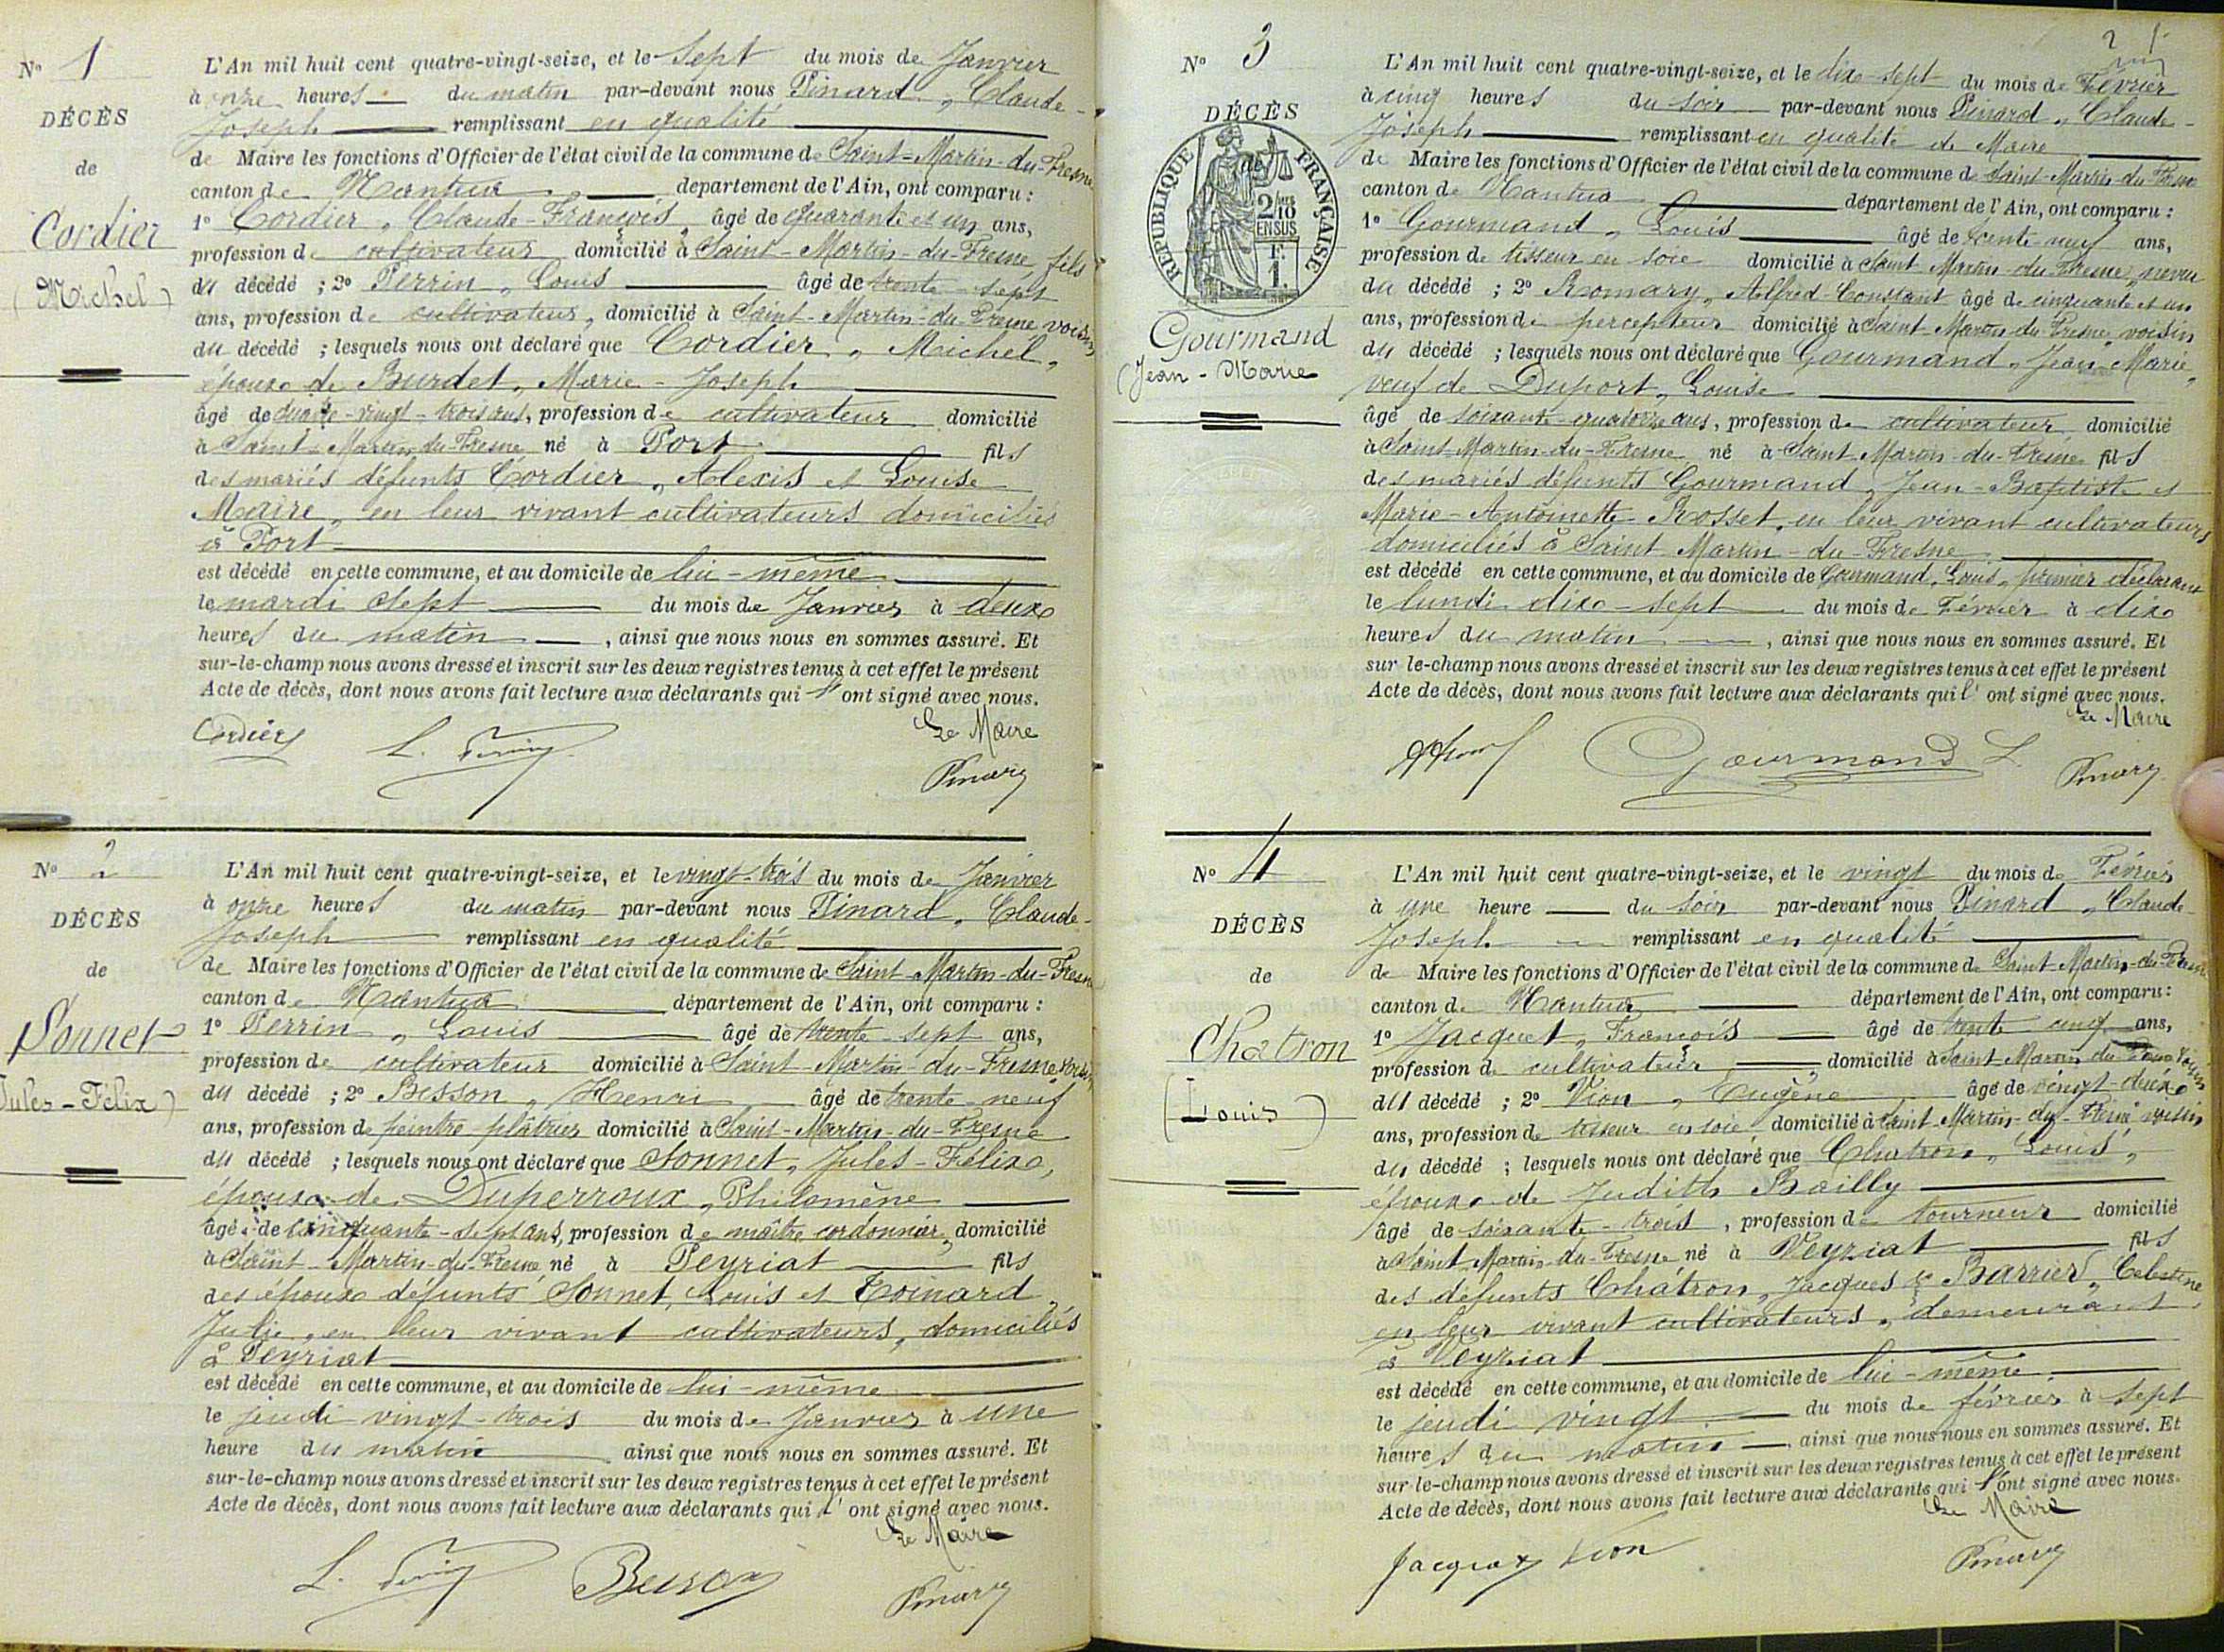 N° 1
DÉCÈS
de
Cordier
(Michel)
L'An mil huit cent quatre-vingt-seize, et le Sept du mois de Janvier
à onze heures du matin par-devant nous Pinard, Claude-
Joseph remplissant en qualité
de Maire les fonctions d'Officier de l'état civil de la commune de Saint-Martin-du-Fresne
canton de Nantua, département de l'Ain, ont comparu :
1° Cordier, Claude-François, âgé de quarante et un ans,
profession de cultivateur domicilié à Saint-Martin-du-Fresne fils
du décédé ; 2° Perrin, Louis âgé de trente-sept
ans, profession de cultivateur, domicilié à Saint-Martin-du-Fresne voisin
du décédé ; lesquels nous ont déclaré que Cordier, Michel,
époux de Burdet, Marie-Joseph
âgé de quatre-vingt-trois ans, profession de cultivateur domicilié
à Saint-Martin-du-Fresne né à Port fils
des mariés défunts Cordier, Alexis et Louise
Maire, en leur vivant cultivateurs domiciliés
à Port
est décédé en cette commune, et au domicile de lui-même
le mardi sept du mois de Janvier à deux
heures du matin, ainsi que nous nous en sommes assuré. Et
sur-le-champ nous avons dressé et inscrit sur les deux registres tenus à cet effet le présent
Acte de décès, dont nous avons fait lecture aux déclarants qui l'ont signé avec nous.
Le Maire
Cordier L. Perrin Pinard
N° 2
DÉCÈS
de
Sonnet
Jules-Félix)
L'An mil huit cent quatre-vingt-seize, et le vingt-trois du mois de Janvier
à onze heures du matin par-devant nous Pinard, Claude-
Joseph remplissant en qualité
de Maire les fonctions d'Officier de l'état civil de la commune de Saint-Martin-du-Fresne
canton de Nantua département de l'Ain, ont comparu :
1° Perrin, Louis âgé de trente-sept ans,
profession de cultivateur domicilié à Saint-Martin-du-Fresne voisin
du décédé ; 2° Besson, Henri âgé de trente-neuf
ans, profession de peintre plâtrier domicilié à Saint-Martin-du-Fresne
du décédé ; lesquels nous ont déclaré que Sonnet, Jules-Félix,
époux de Duperroux, Philomène
âgé de cinquante-sept ans, profession de maître cordonnier, domicilié
à Saint-Martin-du-Fresne né à Peyriat fils
des époux défunts Sonnet, Louis et Toinard,
Julie, en leur vivant cultivateurs, domiciliés
à Peyriat
est décédé en cette commune, et au domicile de lui-même
le jeudi vingt-trois du mois de Janvier à une
heure du matin ainsi que nous nous en sommes assuré. Et
sur-le-champ nous avons dressé et inscrit sur les deux registres tenus à cet effet le présent
Acte de décès, dont nous avons fait lecture aux déclarants qui l'ont signé avec nous.
Le Maire
L. Perrin Besson Pinard
2
N° 3
DÉCÈS
de
RÉPUBLIQUE FRANÇAISE
2/10 EN SUS
F. 1.
Gourmand
(Jean-Marie
L'An mil huit cent quatre-vingt-seize, et le dix-sept du mois de Février
à cinq heures du soir par-devant nous Pinard, Claude-
Joseph remplissant en qualité de Maire
de Maire les fonctions d'Officier de l'état civil de la commune de Saint-Martin-du-Fresne
canton de Nantua département de l'Ain, ont comparu :
1° Gourmand, Louis âgé de trente-neuf ans,
profession de tisseur en soie domicilié à Saint Martin-du-Fresne, neveu
du décédé ; 2° Romary, Alfred-Constant âgé de cinquante et un
ans, profession de percepteur domicilié à Saint Martin du Fresne, voisin
du décédé ; lesquels nous ont déclaré que Gourmand, Jean-Marie,
veuf de Duport, Louise
âgé de soixante-quatorze ans, profession de cultivateur domicilié
à Saint-Martin-du-Fresne né à Saint-Martin-du-Fresne fils
des mariés défunts Gourmand, Jean-Baptiste et
Marie-Antoinette Rosset, en leur vivant cultivateurs
domiciliés à Saint Martin-du-Fresne
est décédé en cette commune, et au domicile de Gourmand, Louis, premier déclarant
le lundi dix-sept du mois de Février à dix
heures du matin, ainsi que nous nous en sommes assuré. Et
sur le-champ nous avons dressé et inscrit sur les deux registres tenus à cet effet le présent
Acte de décès, dont nous avons fait lecture aux déclarants qui l'ont signé avec nous.
Le Maire
Gourmand L. Pinard
N° 4
DÉCÈS
de
Chatron
(Louis)
L'An mil huit cent quatre-vingt-seize, et le vingt du mois de Février
à une heure du soir par-devant nous Pinard, Claude-
Joseph remplissant en qualité
de Maire les fonctions d'Officier de l'état civil de la commune de Saint-Martin-du-Fresne
canton de Nantua département de l'Ain, ont comparu :
1° Jacquet, François âgé de trente cinq ans,
profession de cultivateur, domicilié à Saint Martin du Fresne voisin
du décédé ; 2° Vion, Eugène âgé de vingt-deux
ans, profession de tisseur en soie domicilié à Saint-Martin-du-Fresne voisin
du décédé ; lesquels nous ont déclaré que Chatron, Louis,
époux de Judith Bailly
âgé de soixante-trois, profession de tourneur domicilié
à Saint-Martin-du-Fresne né à Veyziat fils
des défunts Chatron, Jacques & Barrier, Celestine,
en leur vivant cultivateurs, demeurant
à Veyziat
est décédé en cette commune, et au domicile de lui-même,
le jeudi vingt du mois de février à sept
heures du matin, ainsi que nous nous en sommes assuré. Et
sur-le-champ nous avons dressé et inscrit sur les deux registres tenus à cet effet le présent
Acte de décès, dont nous avons fait lecture aux déclarants qui l'ont signé avec nous.
Le Maire
Jacquet Vion Pinard